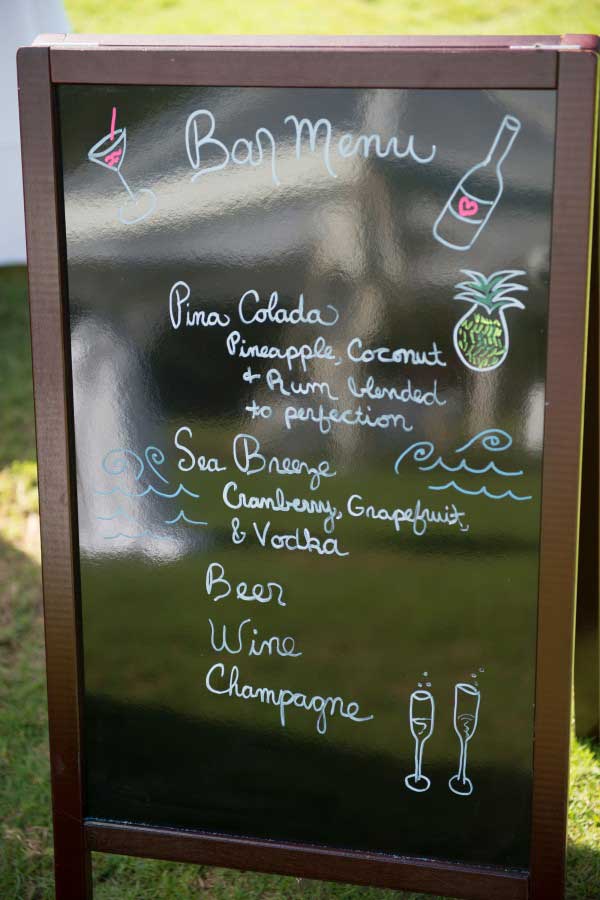 Bar Menu
Pina Colada
Pineapple, Coconut
& Rum blended
to perfection
Sea Breeze
Cranberry, Grapefruit,
& Vodka
Beer
Wine
Champagne